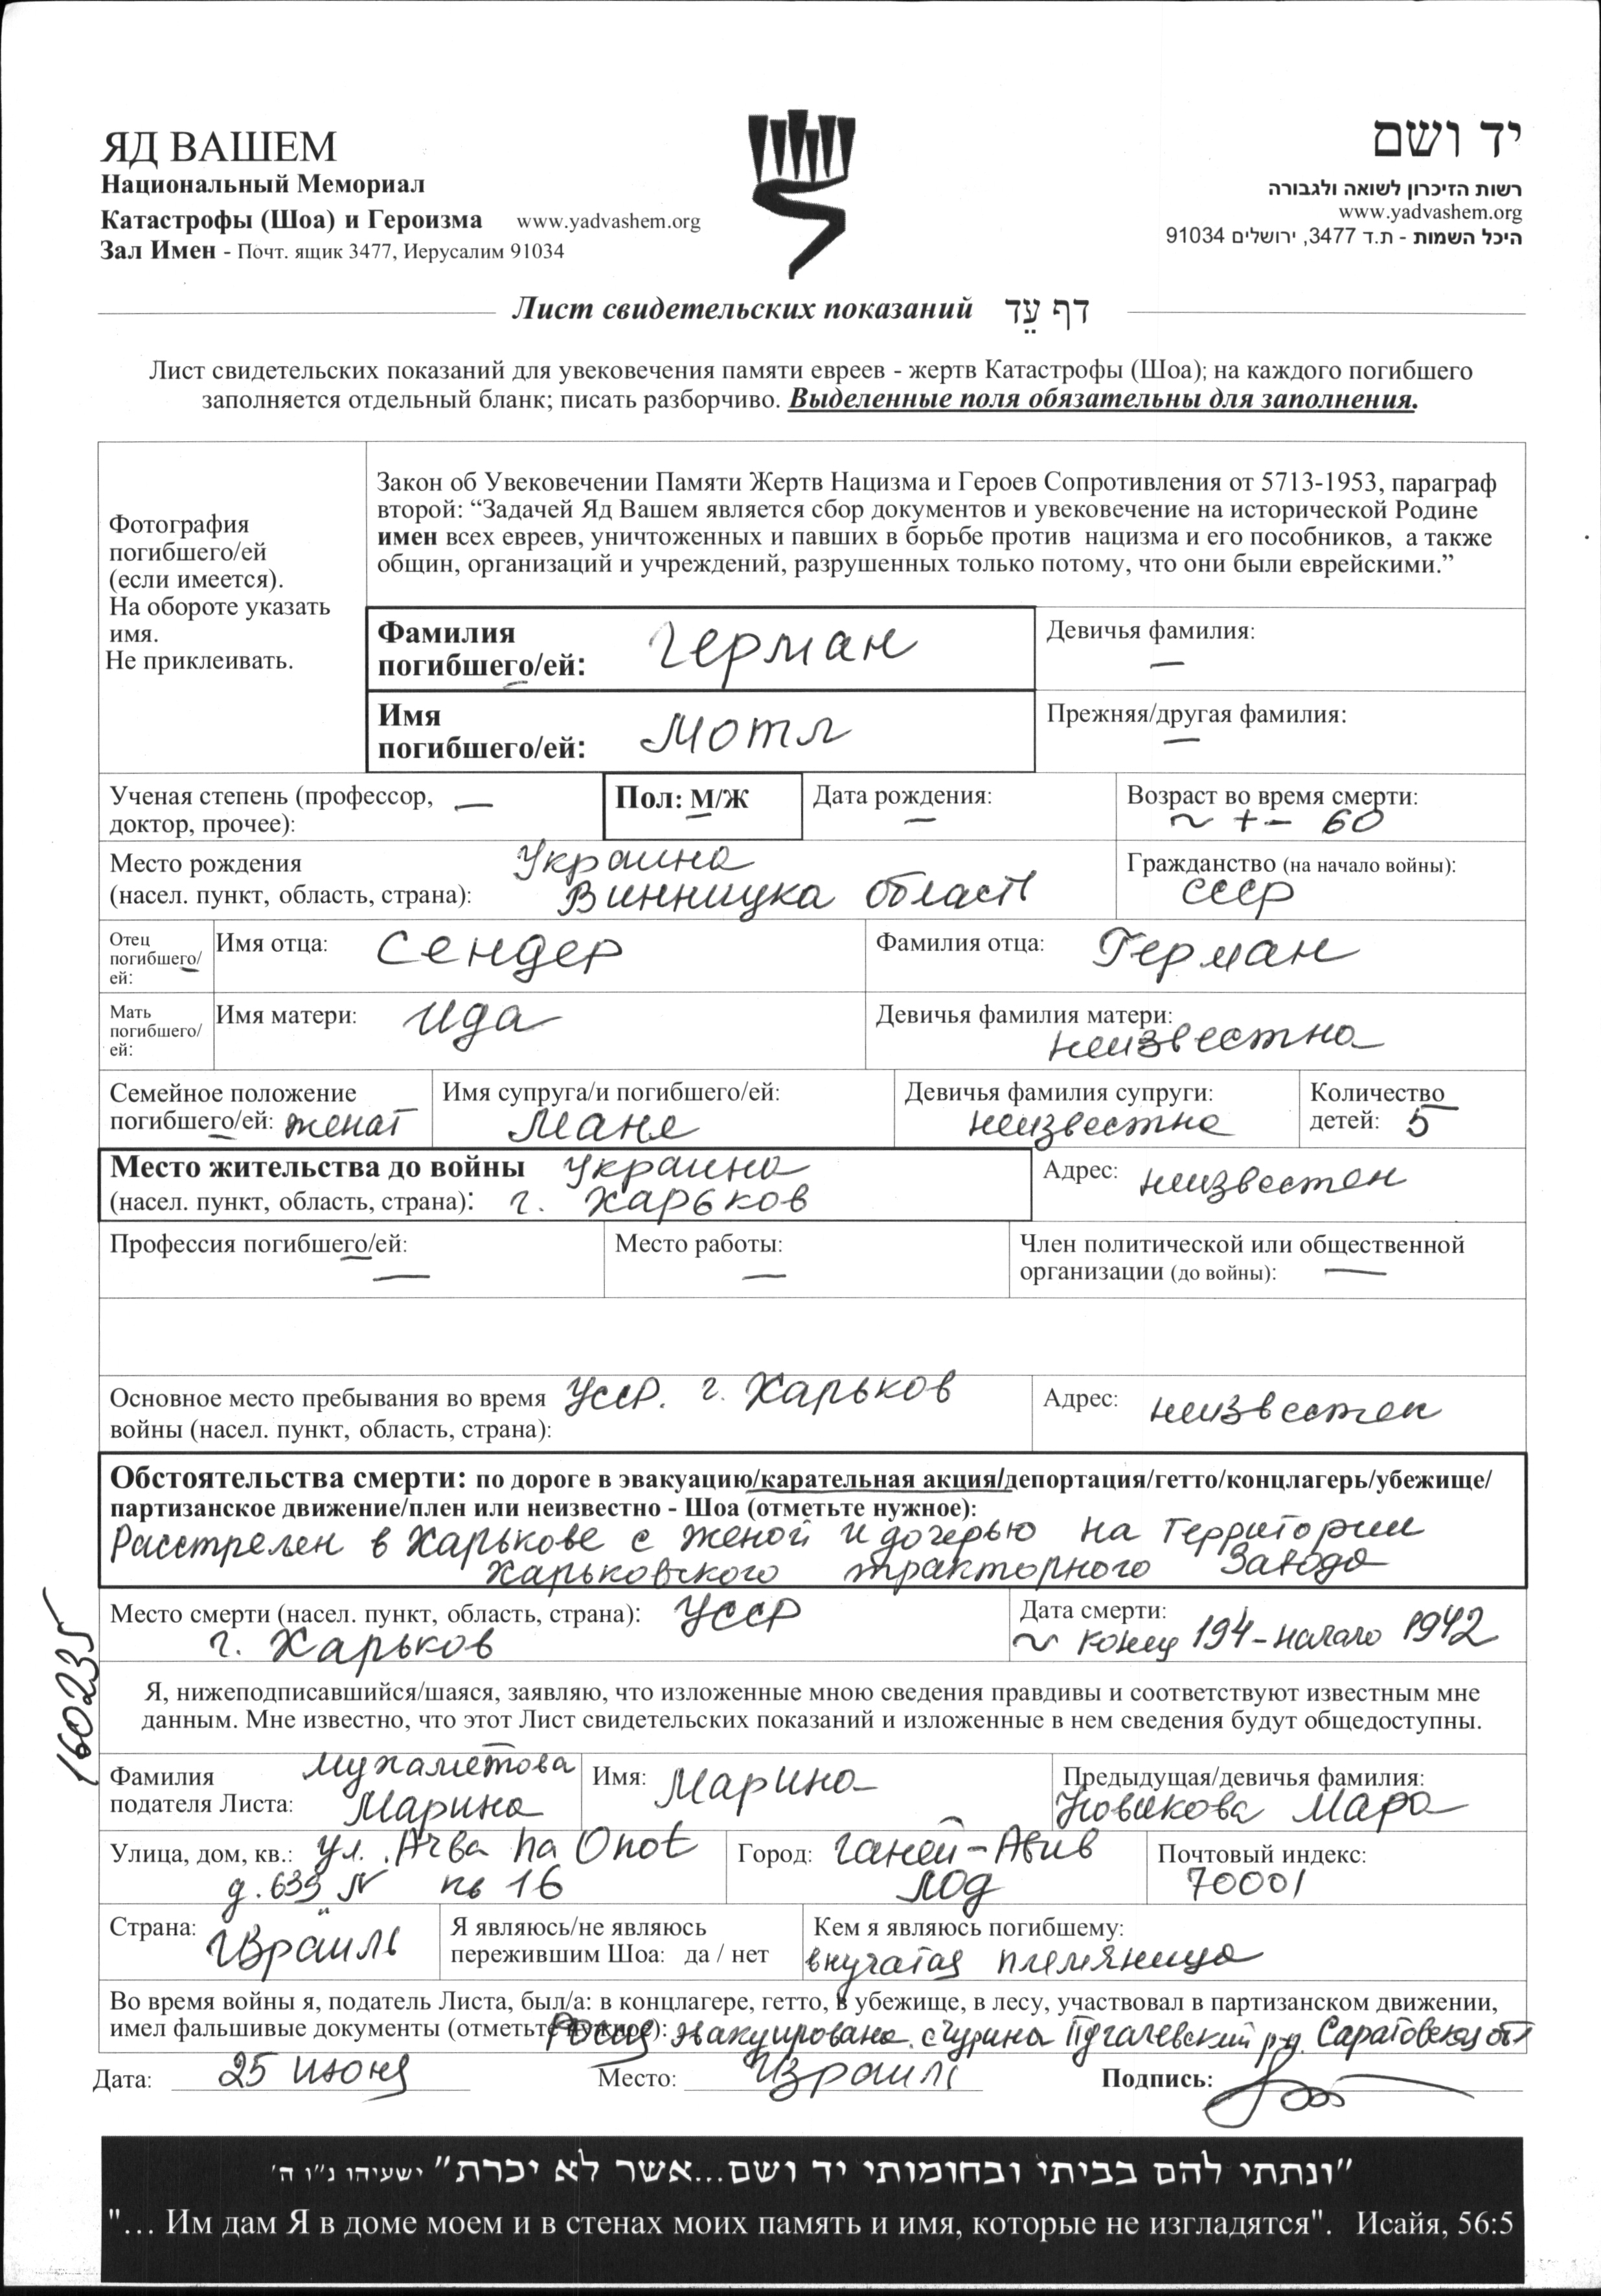 ЯД ВАШЕМ
Национальный Мемориал
Катастрофы (Шоа) и Героизма www.yadvashem.org
Зал Имен - Почт. ящик 3477, Иерусалим 91034
יד ושם
רשות הזיכרון לשואה ולגבורה
www.yadvashem.org
היכל השמות - ת.ד 3477, ירושלים 91034
Лист свидетельских показаний דף עֵד
Лист свидетельских показаний для увековечения памяти евреев - жертв Катастрофы (Шоа); на каждого погибшего
заполняется отдельный бланк; писать разборчиво. Выделенные поля обязательны для заполнения.
Фотография
погибшего/ей
(если имеется).
На обороте указать
имя.
Не приклеивать.
Закон об Увековечении Памяти Жертв Нацизма и Героев Сопротивления от 5713-1953, параграф
второй: “Задачей Яд Вашем является сбор документов и увековечение на исторической Родине
имен всех евреев, уничтоженных и павших в борьбе против нацизма и его пособников, а также
общин, организаций и учреждений, разрушенных только потому, что они были еврейскими.”
Фамилия
погибшего/ей: Герман
Девичья фамилия:
—
Имя
погибшего/ей: Мотл
Прежняя/другая фамилия:
—
Ученая степень (профессор, —
доктор, прочее):
Пол: М/Ж
Дата рождения:
—
Возраст во время смерти:
~ +- 60
Место рождения Украина
(насел. пункт, область, страна): Винницка область
Гражданство (на начало войны):
СССР
Отец
погибшего/
ей:
Имя отца: Сендер
Фамилия отца: Герман
Мать
погибшего/
ей:
Имя матери: Ида
Девичья фамилия матери:
неизвестна
Семейное положение
погибшего/ей: женат
Имя супруга/и погибшего/ей:
Маня
Девичья фамилия супруги:
неизвестна
Количество
детей: 5
Место жительства до войны Украина
(насел. пункт, область, страна): г. Харьков
Адрес: неизвестен
Профессия погибшего/ей:
—
Место работы:
—
Член политической или общественной
организации (до войны): —
Основное место пребывания во время УССР. г. Харьков
войны (насел. пункт, область, страна):
Адрес: неизвестен
Обстоятельства смерти: по дороге в эвакуацию/карательная акция/депортация/гетто/концлагерь/убежище/
партизанское движение/плен или неизвестно - Шоа (отметьте нужное):
Расстрелен в Харькове с женой и дочерью на территории
Харьковского тракторного завода
Место смерти (насел. пункт, область, страна): УССР
г. Харьков
Дата смерти:
~ конец 194-начало 1942
160235
Я, нижеподписавшийся/шаяся, заявляю, что изложенные мною сведения правдивы и соответствуют известным мне
данным. Мне известно, что этот Лист свидетельских показаний и изложенные в нем сведения будут общедоступны.
Фамилия Мухаметова
подателя Листа: Марина
Имя: Марина
Предыдущая/девичья фамилия:
Новикова Мара
Улица, дом, кв.: ул. ha Onot
д. 639 кв 16
Город: Ганей-Авив
Лод
Почтовый индекс:
70001
Страна: Израиль
Я являюсь/не являюсь
пережившим Шоа: да / нет
Кем я являюсь погибшему:
внучатая племяница
Во время войны я, податель Листа, был/а: в концлагере, гетто, в убежище, в лесу, участвовал в партизанском движении,
имел фальшивые документы (отметьте нужное): эвакуирована Пугачевский р-н. Саратовская обл
Дата: 25 июня
Место: Израиль
Подпись:
"ונתתי להם בביתי ובחומותי יד ושם...אשר לא יכרת" ישעיהו נ"ו ה'
"… Им дам Я в доме моем и в стенах моих память и имя, которые не изгладятся". Исайя, 56:5